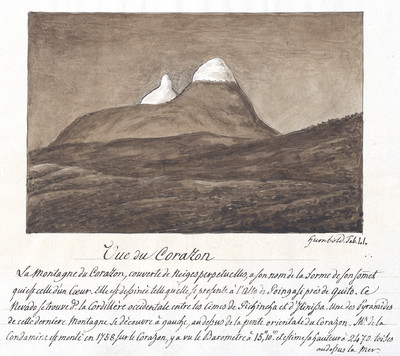 Humboldt Tab. LI.
Vue du Corazon
La Montagne du Corazon, couverte de Neiges perpetuelles, a son nom de la forme de son somet
qui est celle d'un Cœur. Elle est dessinée telle qu'elle se presente à l'Alto de Poingasi près de Quito. Ce
Nevado se trouve ds la Cordillère occidentale entre les Cimes de Pichincha et d'Ilinissa. Une des Pyramides
de cette derniere Montagne se découvre à gauche, au dessus de la pente orientale du Corazon. Mr. de la
Condamine est monté en 1738 sur le Corazon, y a vu le Barometre à 15,10 et estime sa hauteur à 2470 toises
au dessus la Mer.